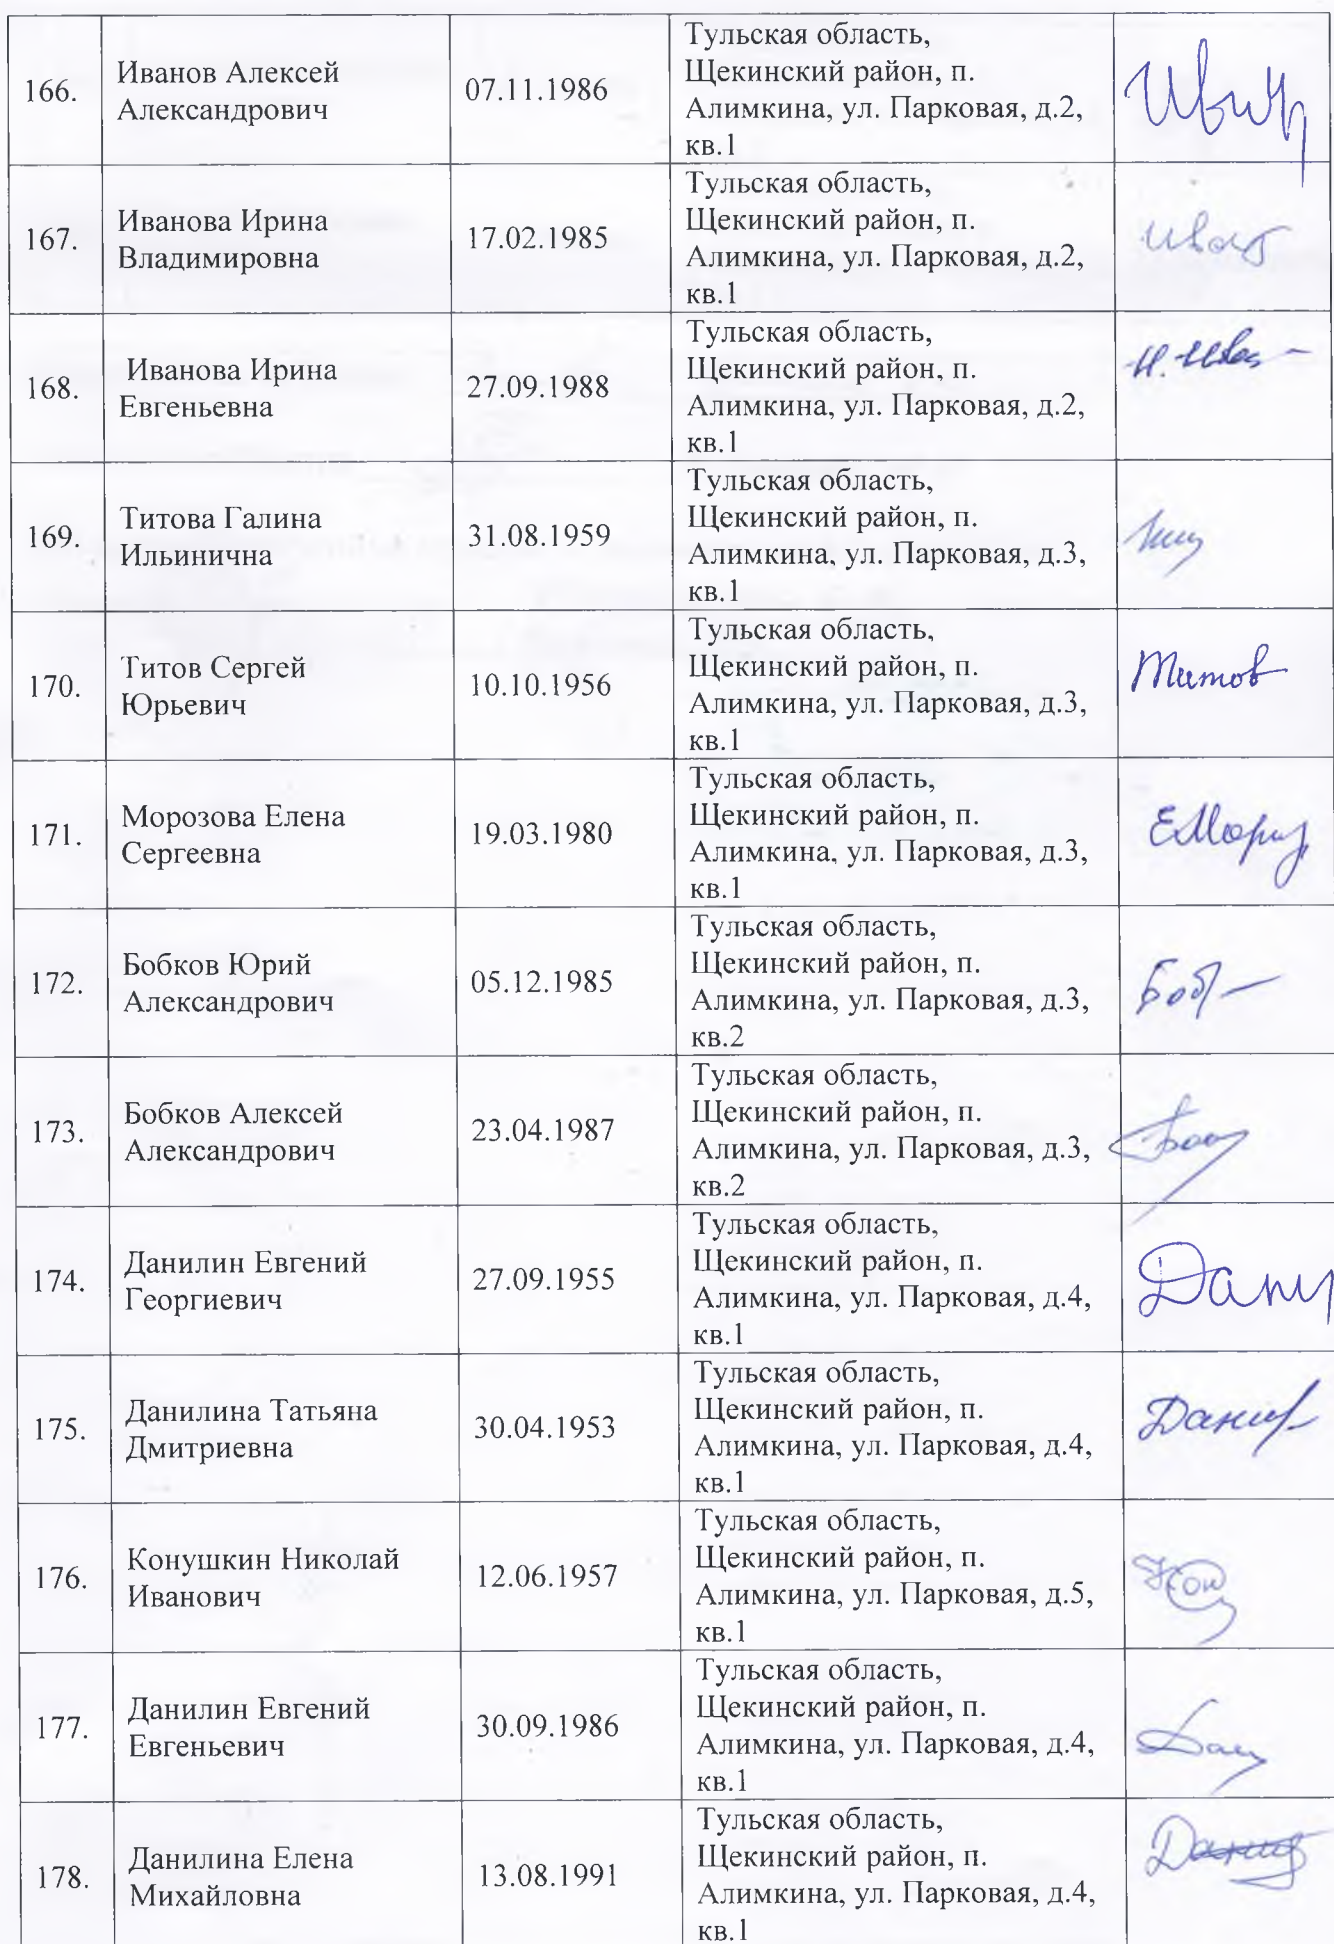 166.
Иванов Алексей
Александрович
07.11.1986
Тульская область,
Щекинский район, п.
Алимкина, ул. Парковая, д.2,
кв.1
167.
Иванова Ирина
Владимировна
17.02.1985
Тульская область,
Щекинский район, п.
Алимкина, ул. Парковая, д.2,
кв.1
168.
Иванова Ирина
Евгеньевна
27.09.1988
Тульская область,
Щекинский район, п.
Алимкина, ул. Парковая, д.2,
кв.1
169.
Титова Галина
Ильинична
31.08.1959
Тульская область,
Щекинский район, п.
Алимкина, ул. Парковая, д.3,
кв.1
170.
Титов Сергей
Юрьевич
10.10.1956
Тульская область,
Щекинский район, п.
Алимкина, ул. Парковая, д.3,
кв.1
Титов
171.
Морозова Елена
Сергеевна
19.03.1980
Тульская область,
Щекинский район, п.
Алимкина, ул. Парковая, д.3,
кв.1
172.
Бобков Юрий
Александрович
05.12.1985
Тульская область,
Щекинский район, п.
Алимкина, ул. Парковая, д.3,
кв.2
173.
Бобков Алексей
Александрович
23.04.1987
Тульская область,
Щекинский район, п.
Алимкина, ул. Парковая, д.3,
кв.2
174.
Данилин Евгений
Георгиевич
27.09.1955
Тульская область,
Щекинский район, п.
Алимкина, ул. Парковая, д.4,
кв.1
175.
Данилина Татьяна
Дмитриевна
30.04.1953
Тульская область,
Щекинский район, п.
Алимкина, ул. Парковая, д.4,
кв.1
176.
Конушкин Николай
Иванович
12.06.1957
Тульская область,
Щекинский район, п.
Алимкина, ул. Парковая, д.5,
кв.1
177.
Данилин Евгений
Евгеньевич
30.09.1986
Тульская область,
Щекинский район, п.
Алимкина, ул. Парковая, д.4,
кв.1
178.
Данилина Елена
Михайловна
13.08.1991
Тульская область,
Щекинский район, п.
Алимкина, ул. Парковая, д.4,
кв.1